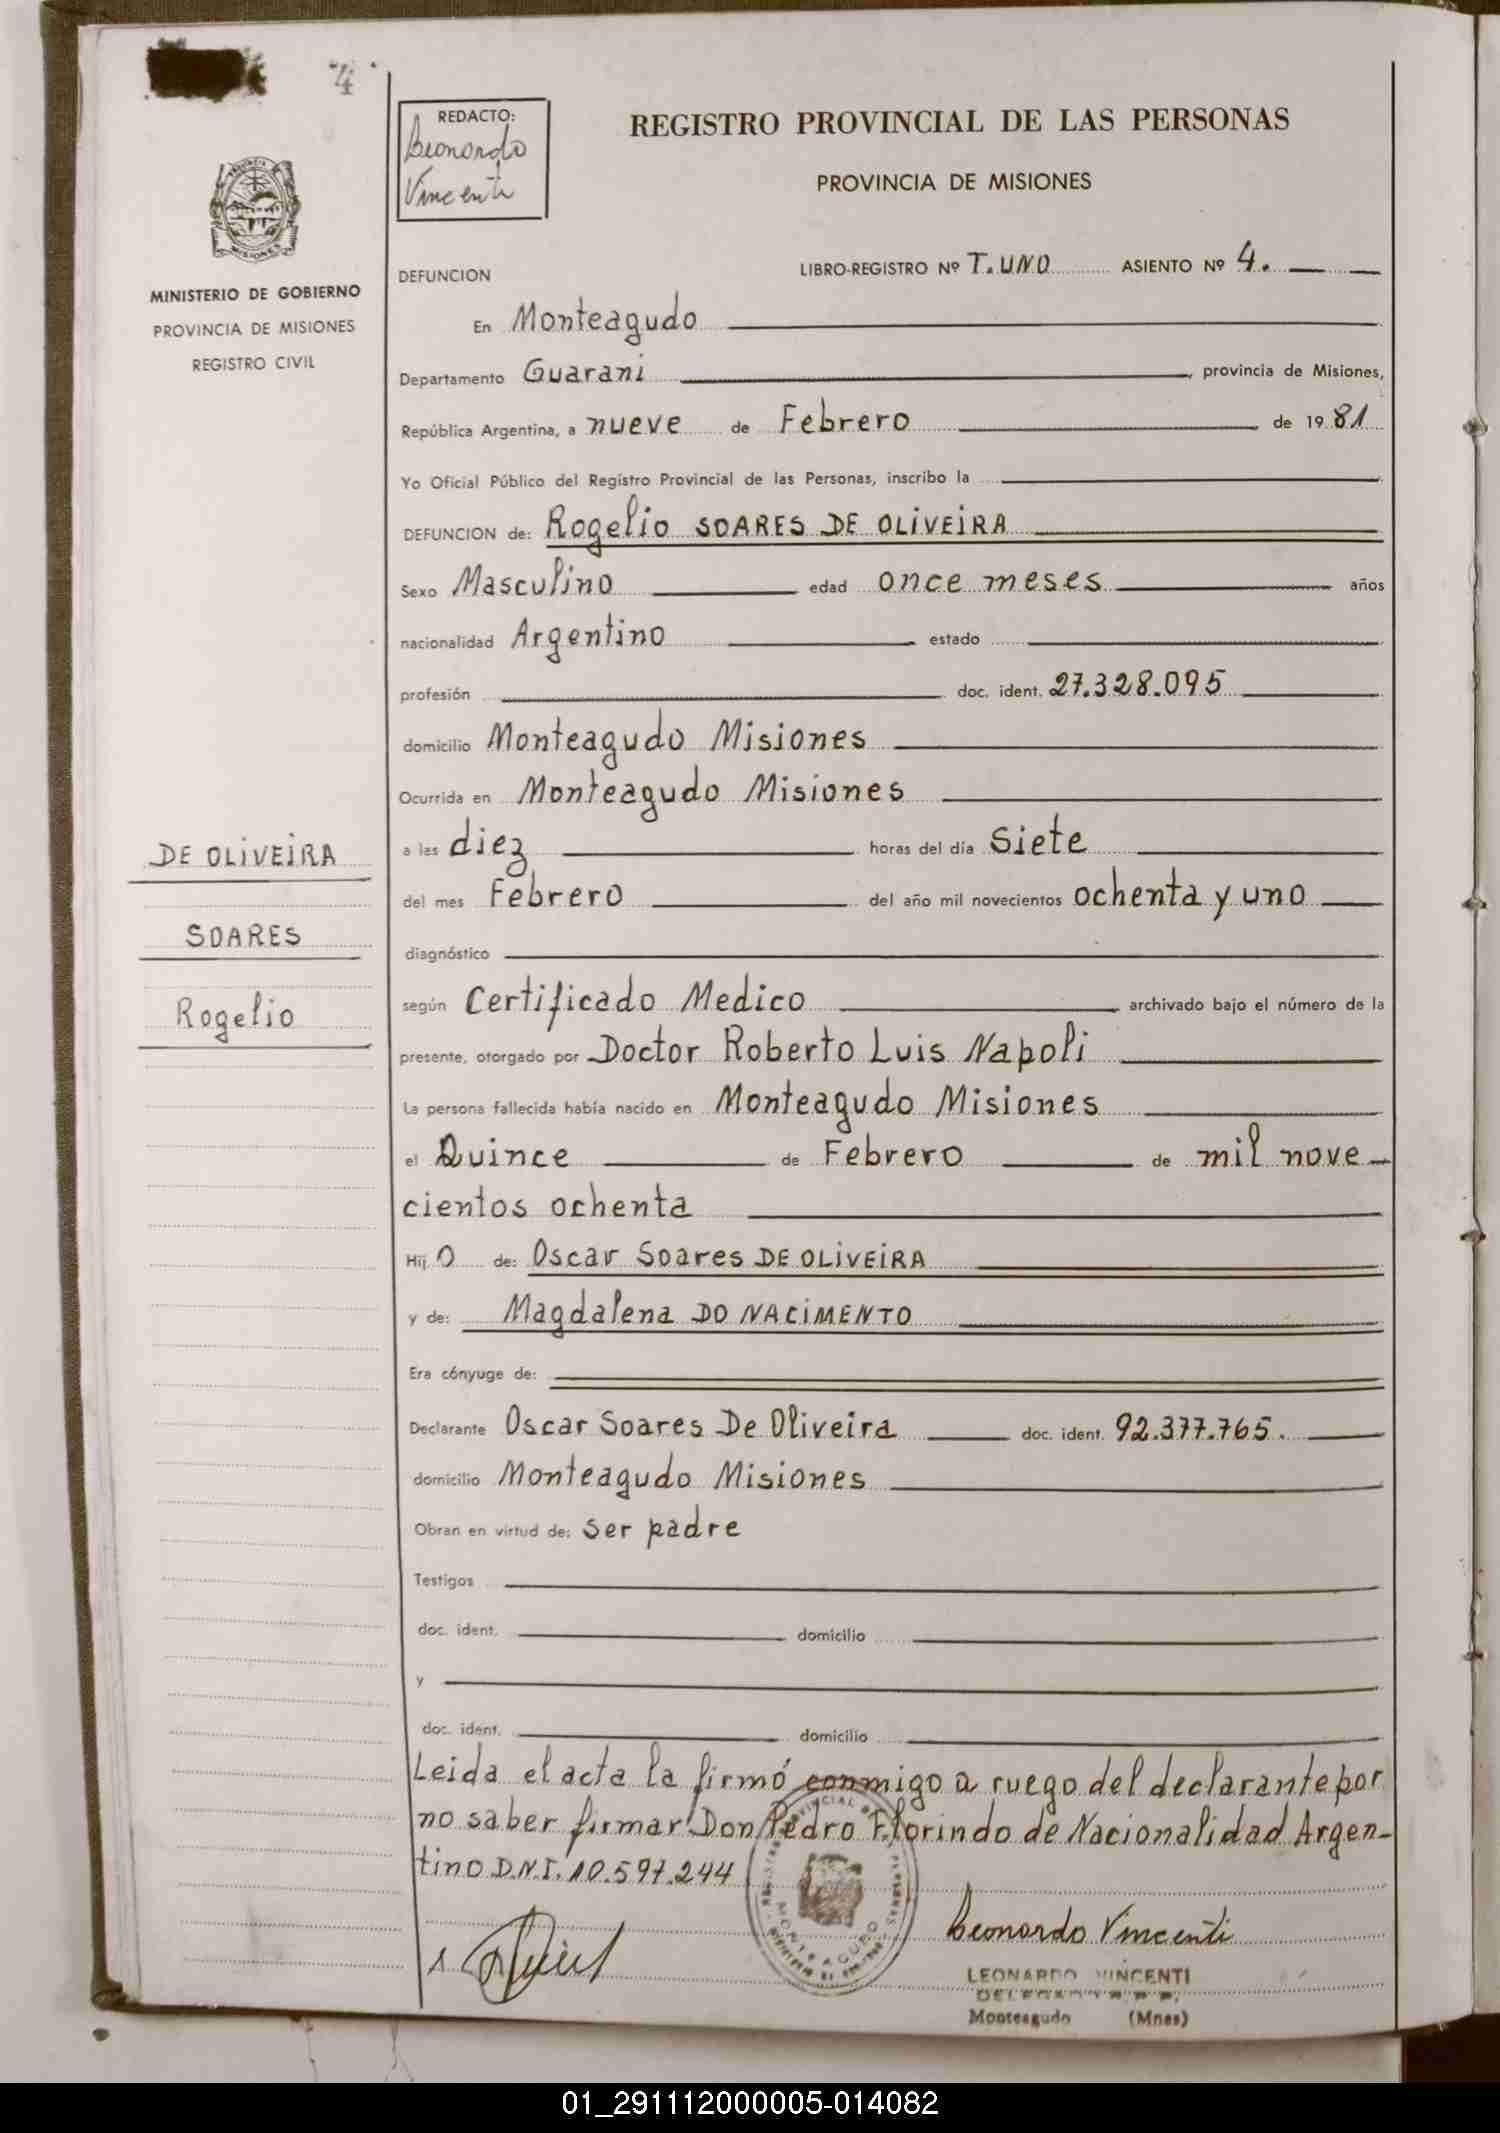 4
REDACTO:
Leonardo
Vincenti
REGISTRO PROVINCIAL DE LAS PERSONAS
PROVINCIA DE MISIONES
MINISTERIO DE GOBIERNO
PROVINCIA DE MISIONES
REGISTRO CIVIL
DEFUNCION LIBRO-REGISTRO Nº T. UNO ASIENTO Nº 4.
En Monteagudo
Departamento Guarani, provincia de Misiones,
República Argentina, a nueve de Febrero de 1981
Yo Oficial Público del Registro Provincial de las Personas, inscribo la
DEFUNCION de: Rogelio SOARES DE OLIVEIRA
Sexo Masculino edad once meses años
nacionalidad Argentino estado
profesión doc. ident. 27.328.095
domicilio Monteagudo Misiones
Ocurrida en Monteagudo Misiones
a las diez horas del día Siete
del mes Febrero del año mil novecientos ochenta y uno
diagnóstico
según Certificado Medico archivado bajo el número de la
presente, otorgado por Doctor Roberto Luis Napoli
La persona fallecida había nacido en Monteagudo Misiones
el Quince de Febrero de mil nove-
cientos ochenta
Hij O de: Oscar Soares DE OLIVEIRA
y de: Magdalena DO NACIMENTO
Era cónyuge de:
Declarante Oscar Soares De Oliveira doc. ident. 92.377.765.
domicilio Monteagudo Misiones
Obran en virtud de: Ser padre
Testigos
doc. ident. domicilio
y
doc. ident. domicilio
Leida el acta la firmó conmigo a ruego del declarante por
no saber firmar Don Pedro Florindo de Nacionalidad Argen-
tino D.N.I. 10.597.244
DE OLIVEIRA
SOARES
Rogelio
MONTEAGUDO
Leonardo Vincenti
LEONARDO VINCENTI
Monteagudo (Mnes)
01_291112000005-014082